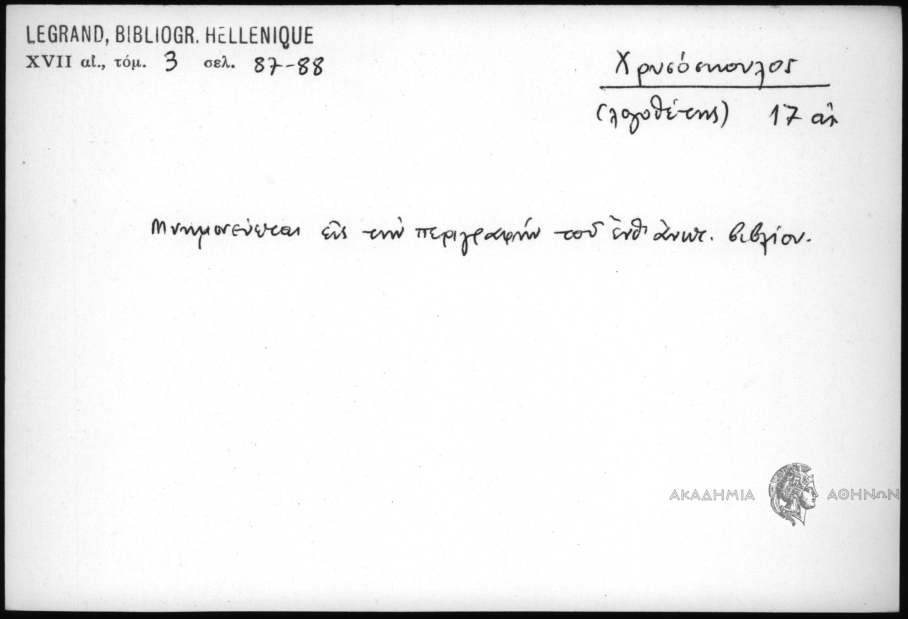 LEGRAND, BIBLIOGR. HELLENIQUE
XVII αἰ., τόμ. 3 σελ. 87-88
Χρυσόσκουλος
(λογοθέτης) 17 αἰ
Μνημονεύεται εἰς τὴν περιγραφὴν τοῦ ἔνθ' ἀνωτ. βιβλίου.
ΑΚΑΔΗΜΙΑ ΑΘΗΝΩΝ